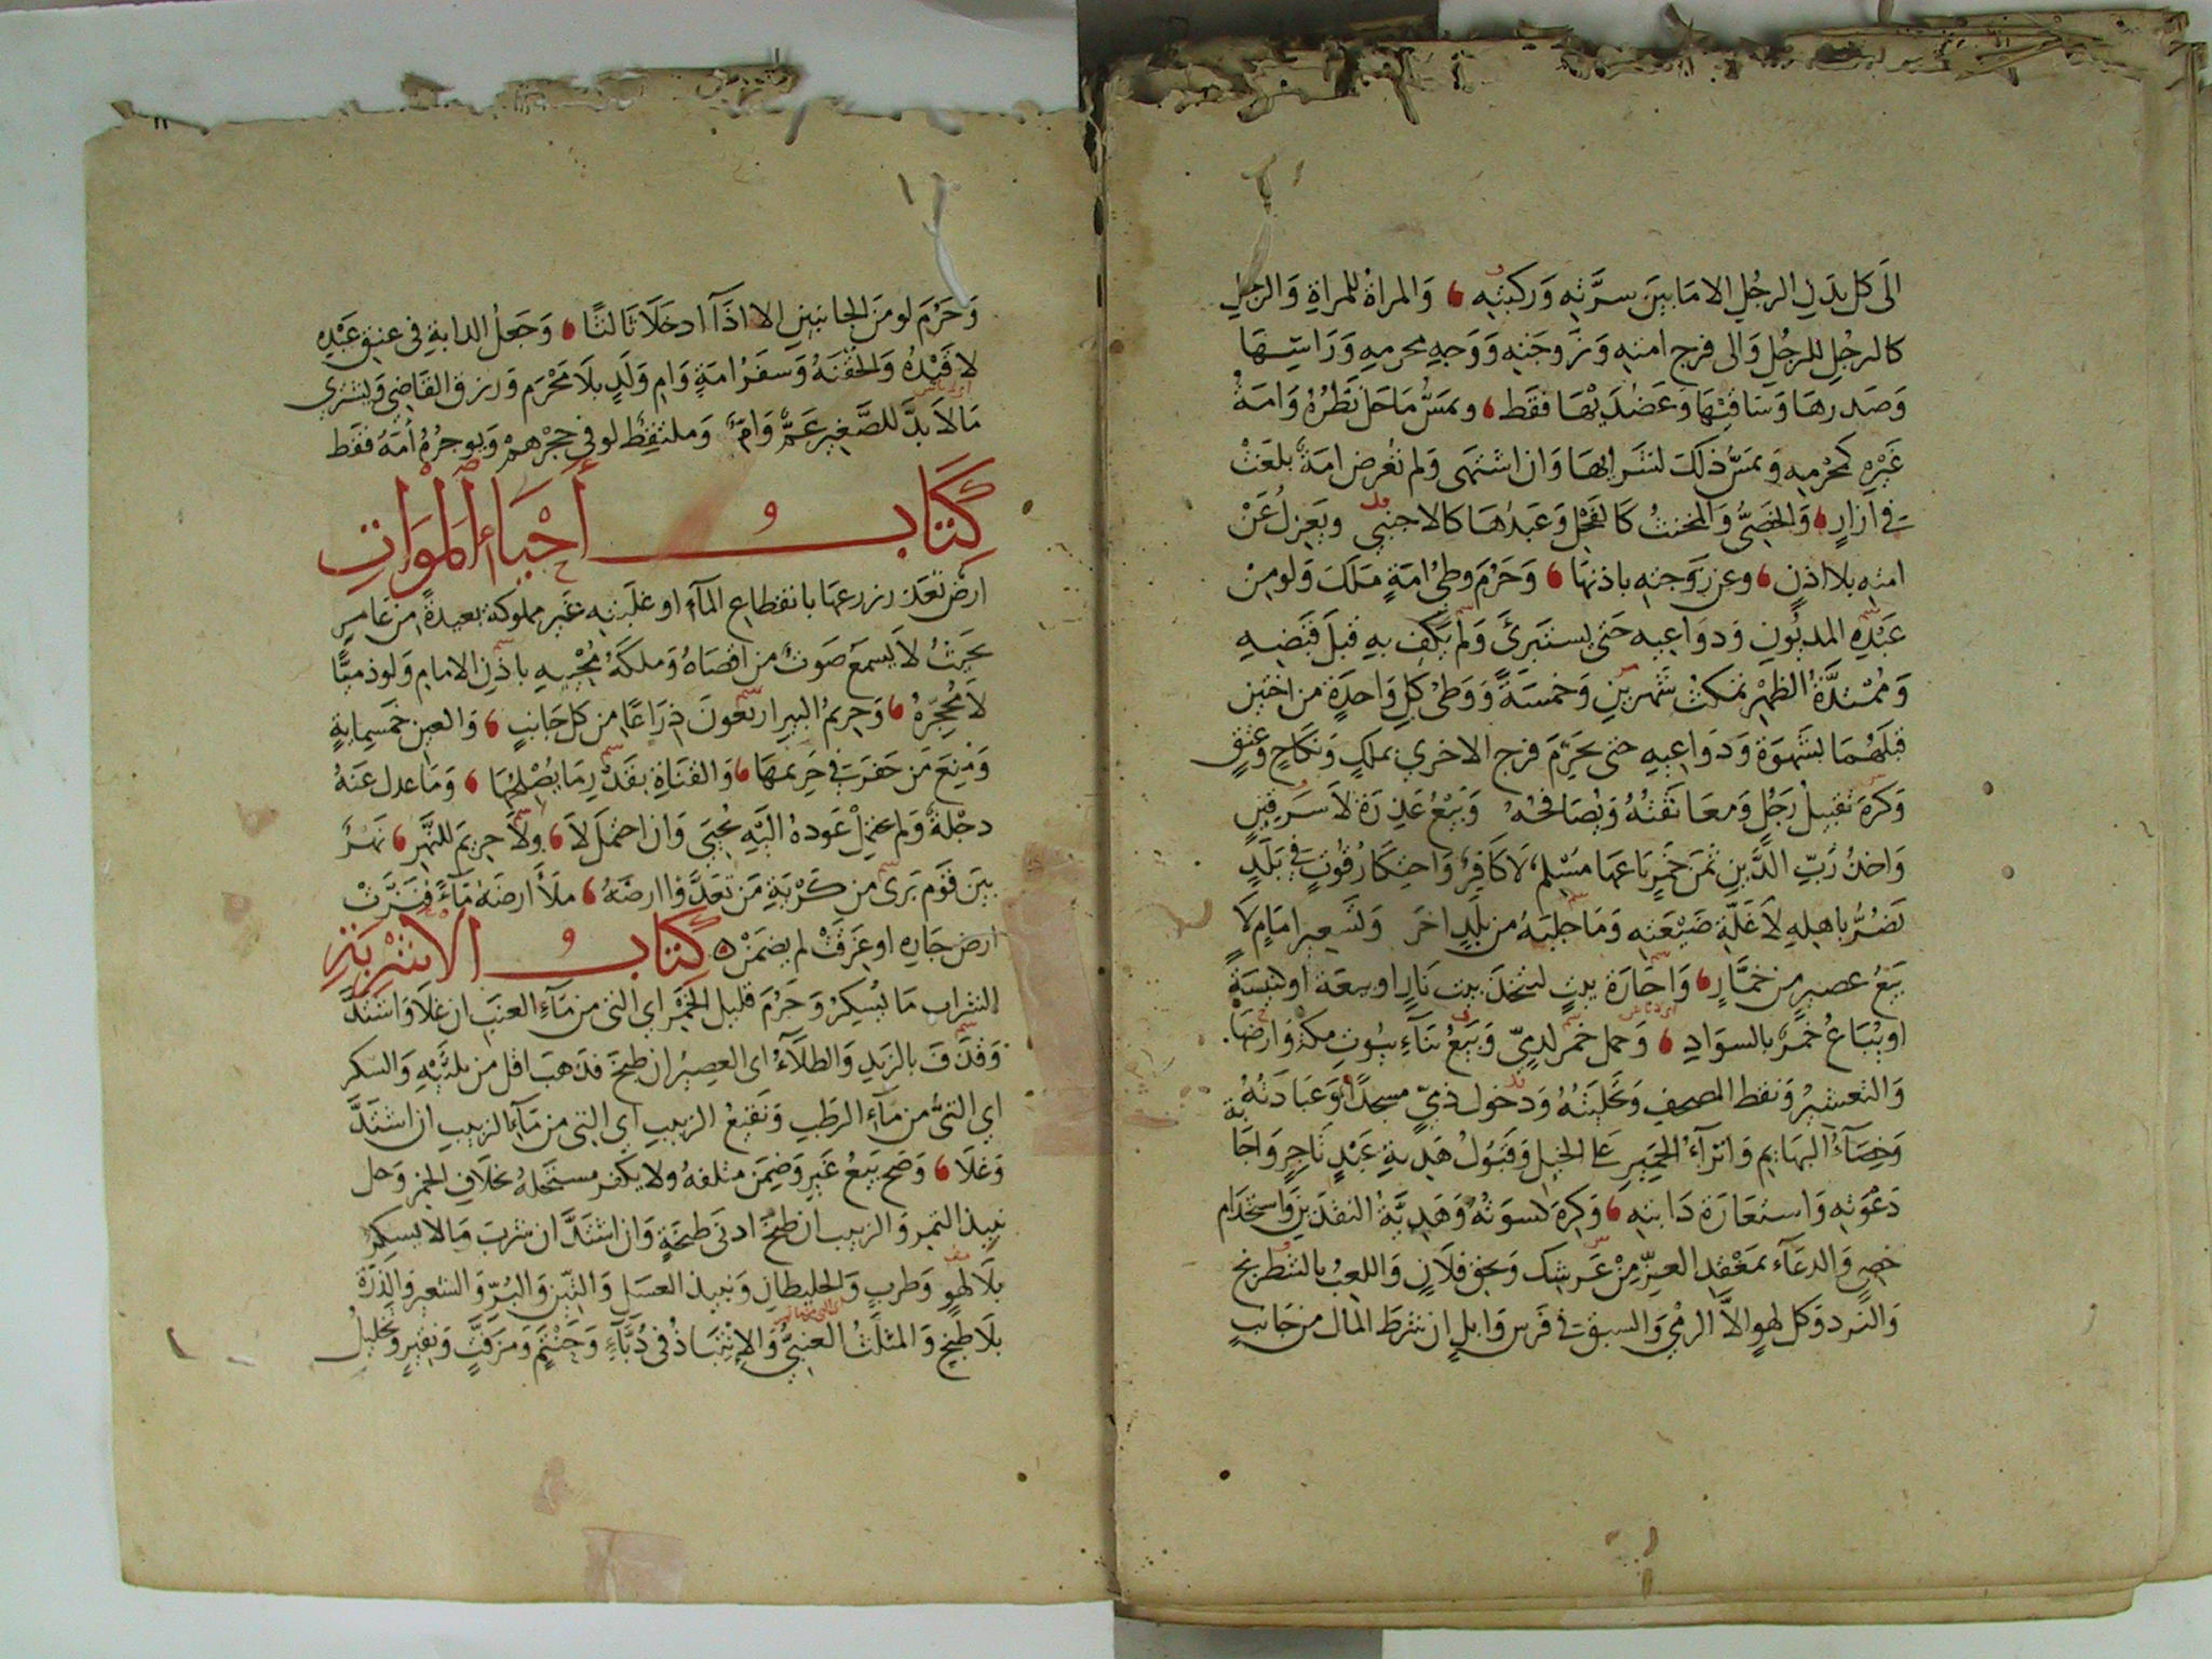 الى كل بدن الرجل الا ما بين سرته وركبته والمراة للمراة والرجل
كالرجل للرجل والى فرج امته وزوجته ووجه محرمه ورأسها
وصدرها وساقيها وعضديها فقط ومس ما حل نظره وامة
غيره كمحرمه ومس ذلك لشرائها وان اشتهى ولم تعرض امة بلغت
في ازار والخصي والمخنث كالفحل وعبدها كالاجنبي ويعزل عن
امته بلا اذن وعن زوجته باذنها وحرم وطئ امة ملك ولو من
عبده المديون ودواعيه حتى يستبرئ ولم يكف به قبل قبضه
وممتدة الطهر تمكث شهرين وخمسة ووطئ كل واحدة من اختين
قبلهما بشهوة ودواعيه حتى يحرم فرج الاخرى بملك ونكاح وعتق
وكره تقبيل رجل ومعانقته ويصافحه وبيع عذرة لا سرقين
واخذ رب الدين ثمن خمر باعها مسلم لا كافر واحتكار قوت في بلد
تضر باهله لا غلة ضيعته وما جلبه من بلد اخر وتسعير امام لا
بيع عصير من خمار واجارة بيت لتتخذ بيت نار او بيعة او كنيسة
او يباع خمر بالسواد وحمل خمر لذمي وبيع بناء بيوت مكة وارضها
والتعشير ونقط المصحف وتحليته ودخول ذمي مسجدا وعيادته
وخصاء البهايم وانزاء الحمير على الخيل وقبول هدية عبد تاجر واجابة
دعوته واستعارة دابته وكره كسوته وهدية النقدين واستخدام
خصي والدعاء بمعقد العز من عرشك وبحق فلان واللعب بالشطرنج
والنرد وكل لهو الا الرمي والسبق في فرس وابل ان شرط المال من جانب
وحرم لو من الجانبين الا اذا ادخلا ثالثا وجعل الداية في عنق عبده
لا قيده والحقنة وسفر امة وام ولد بلا محرم ورزق القاضي ويشتري
ما لا بد للصغير عم وام وملتقط لو في حجرهم ويوجره امه فقط
كتاب أحياء الموات
ارض تعذر زرعها بانقطاع الماء او غلبته غير مملوكة بعيدة من عامر
بحيث لا يسمع صوت من اقصاه وملكه محييه باذن الامام ولو ذميا
لا محجره وحريم البير اربعون ذراعا من كل جانب والعين خمسماية
ومنع من حفر في حريمها والقناة بقدر ما يصلحها وما عدل عنه
دجلة ولم يحتمل عوده اليه يحيى وان احتمل لا ولا حريم للنهر نهر
بين قوم يرى من كربه من تعد فا ارضه ملأ ارضه ماء فنزت
ارض جاره او غرقت لم يضمن كتاب الاشربة
الشراب ما يسكر وحرم قليل الخمر اي الني من ماء العنب ان غلا واشتد
وقذف بالزبد والطلاء اي العصير ان طبخ فذهب اقل من ثلثيه والسكر
اي الني من ماء الرطب ونقيع الزبيب اي الني من ماء الزبيب ان اشتد
وغلا وصح بيع غير وضمن متلفه ولا يكفر مستحله بخلاف الخمر وحل
نبيذ التمر والزبيب ان طبخ ادنى طبخة وان اشتد ان شرب ما لا يسكر
بلا لهو وطرب والخليطان ونبيذ العسل والتين والبر والشعير والذرة
بلا طبخ والمثلث العنبي والانتباذ في دباء وحنتم ومزفت ونقير وتخليل